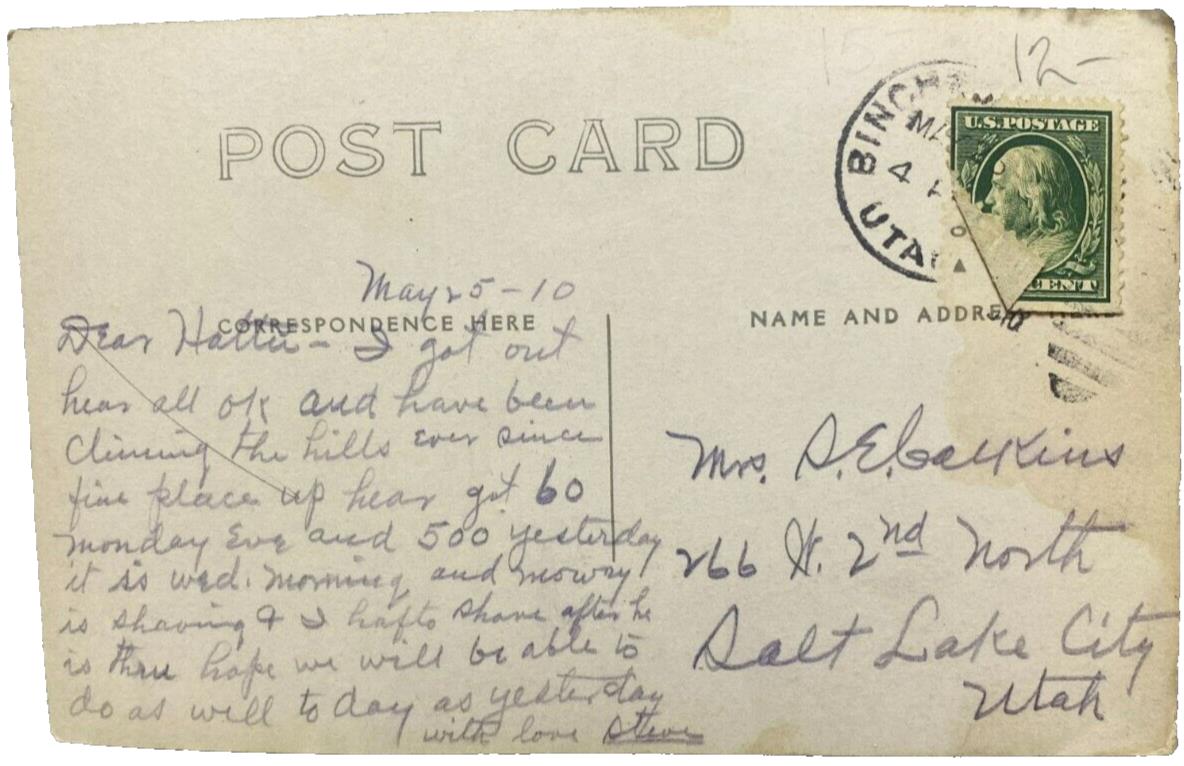 12-
POST CARD
BINGH
MA
4
UTA
U.S. POSTAGE
CENT
May 25-10
CORRESPONDENCE HERE
NAME AND ADDRE
Dear Hattie - I got out
hear all ok and have been
climing the hills ever since
fine place up hear got 60
monday Eve and 500 yesterday
it is wed. morning and mowry
is shaving & I hafto shave after he
is thru hope we will be able to
do as will to day as yesterday
with love Steve
Mrs. S. E. Calkins
266 W. 2nd North
Salt Lake City
Utah